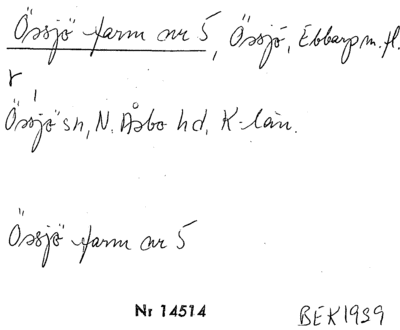 Össjö farm nr 5, Össjö, Ebbarp m.fl.
r
Össjö sn, N. Åsbo hd, K-län.
Össjö farm nr 5
Nr 14514
BEK1939